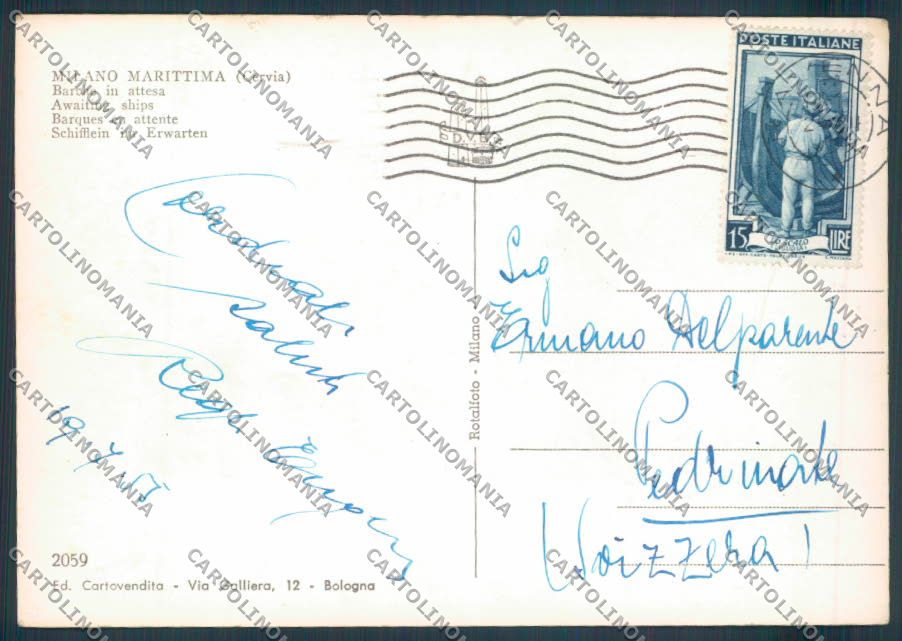 MILANO MARITTIMA (Cervia)
Barche in attesa
Awaiting ships
Barques en attente
Schifflein in Erwarten
POSTE ITALIANE
15 LIRE
Cordiali
Saluti
19.7.5
Sig
Ermano Delparente
Pedrinate
Svizzera
Rotalfoto - Milano
2059
Ed. Cartovendita - Via Galliera, 12 - Bologna
CARTOLINOMANIA